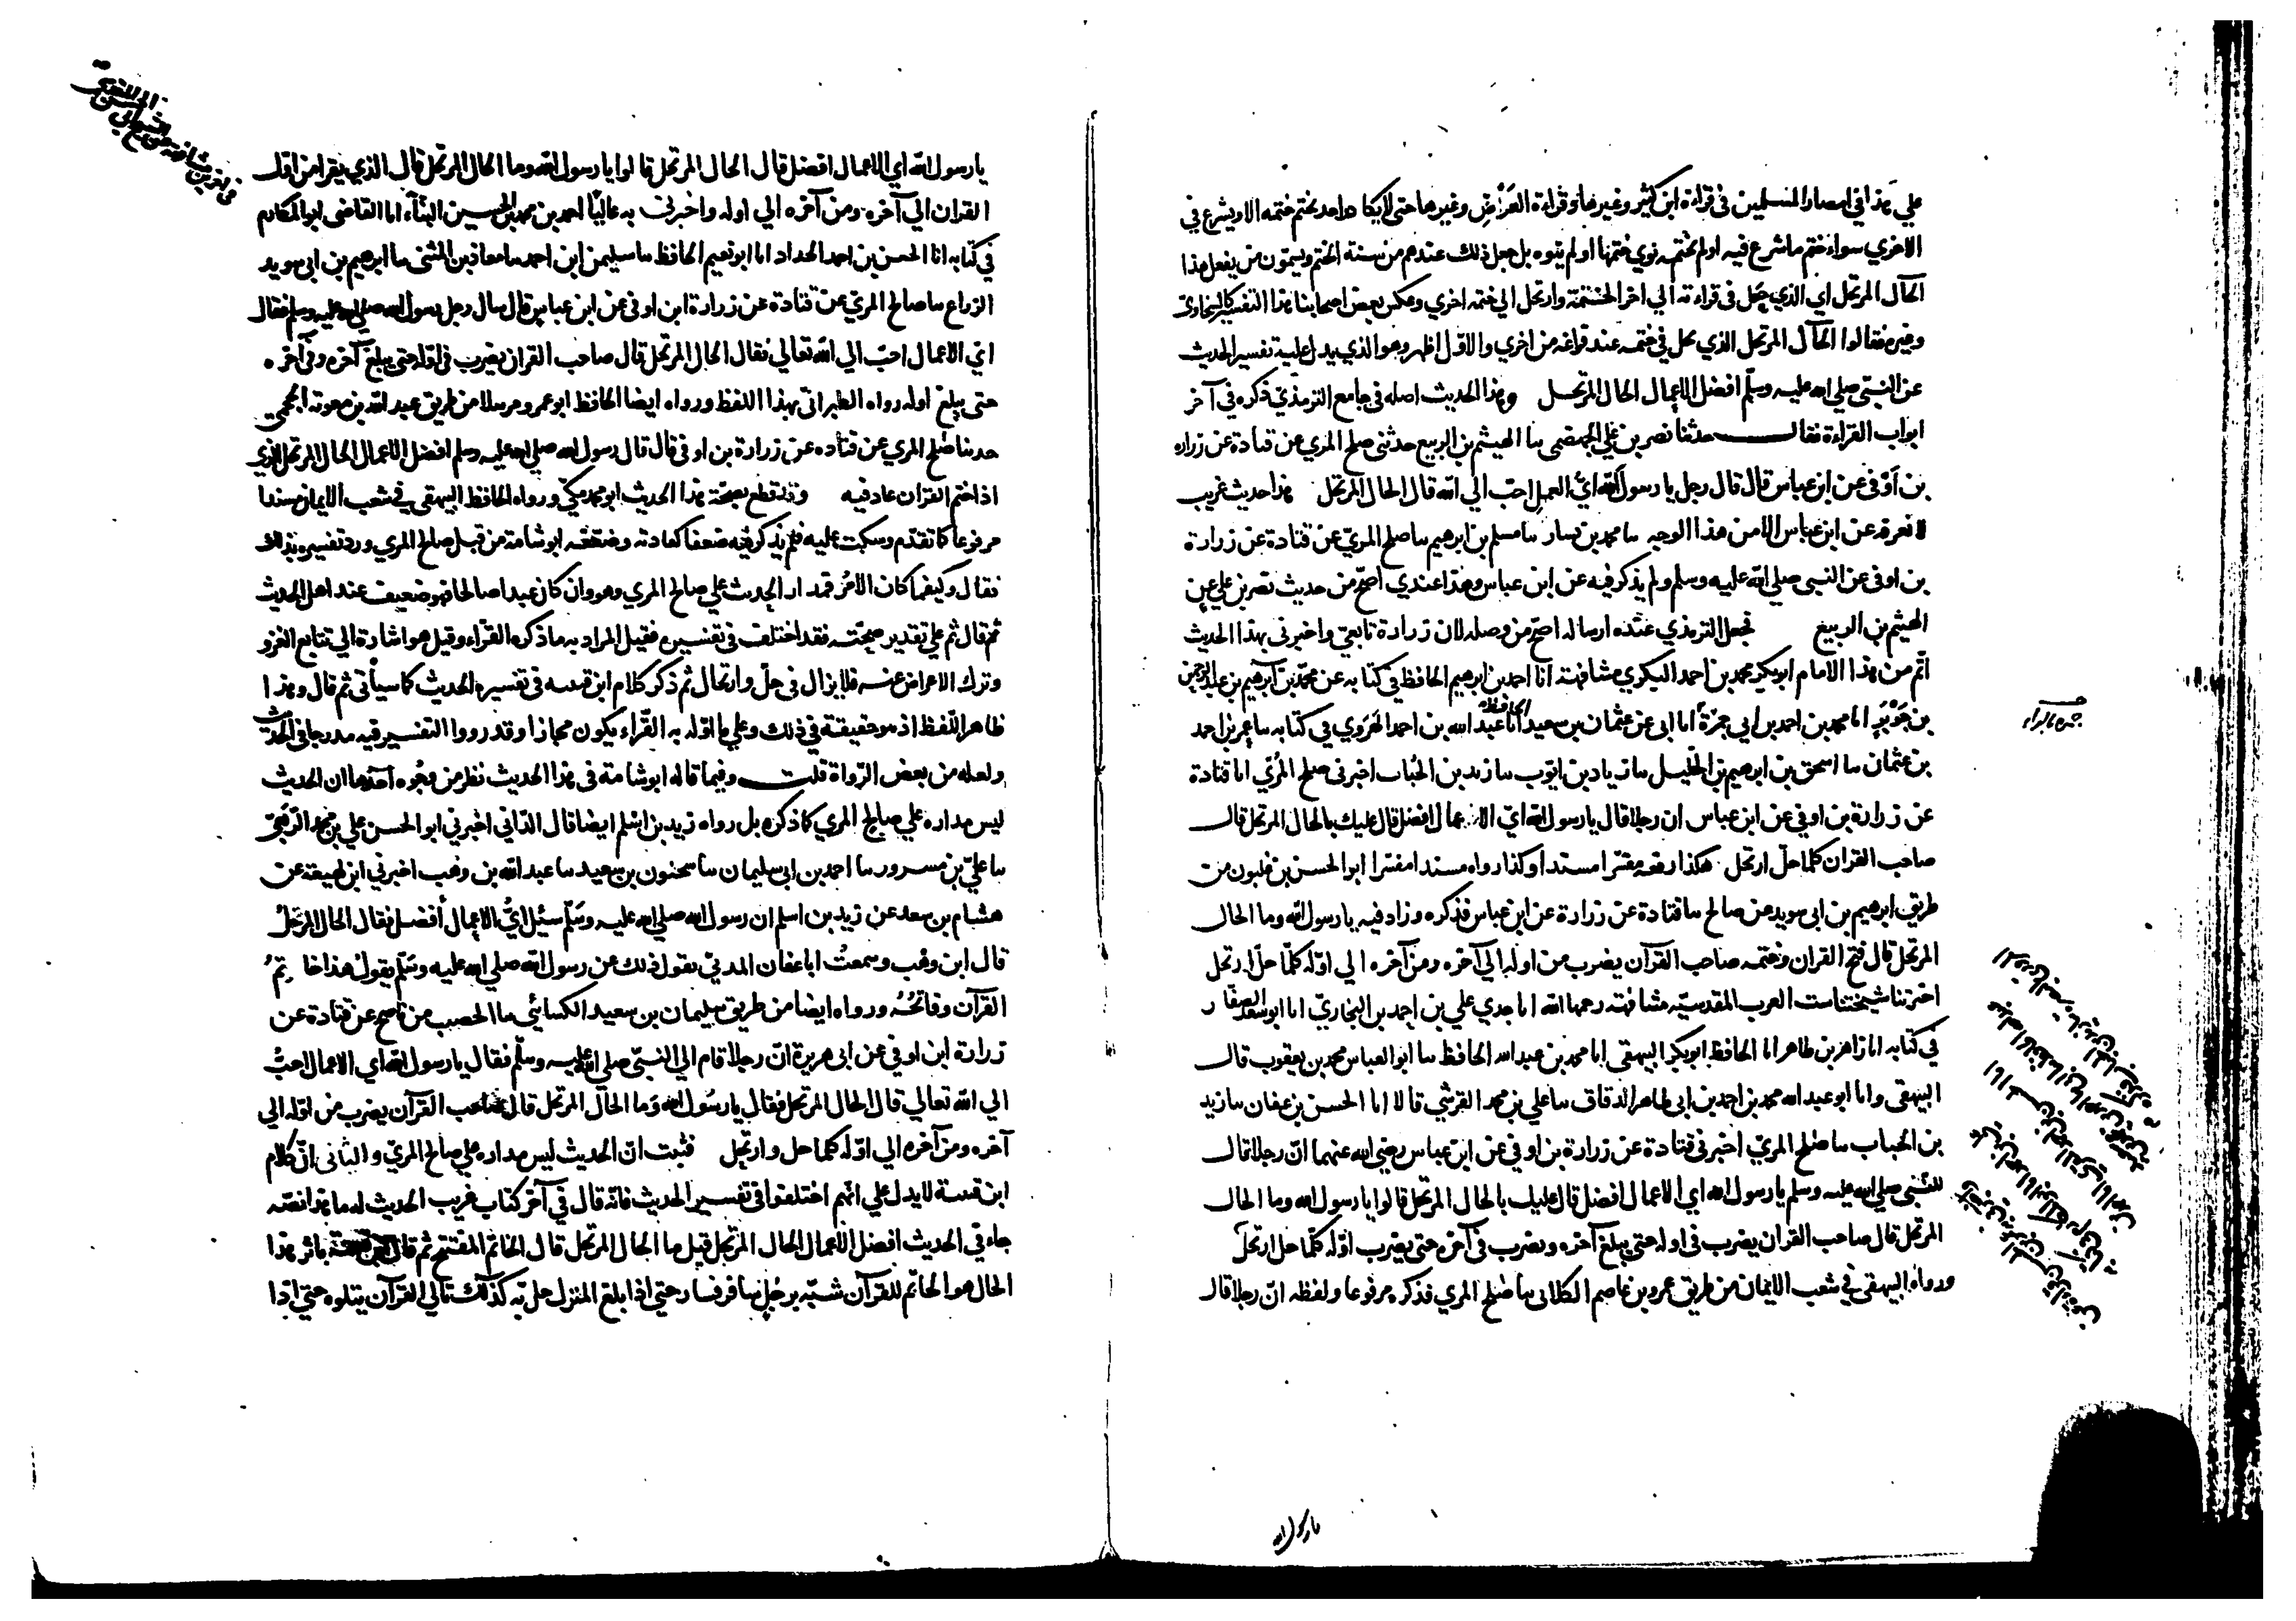 علي هذا في امصار المسلمين في قراءة ابن كثير وغيرها وقراءة العرض وغيرها حتى لا يكاد واحد يختم ختمه الا ويشرع في
الاخري سواء ختم ما شرع فيه او لم يختمه نوي ختمها او لم ينوه بل جعل ذلك عندهم من سنة الختم ويسمون من يفعل هذا
الحال المرتحل اي الذي حل في قراءته الي اخر الختمة وارتحل الي ختمه اخري وعكس بعض اصحابنا هذا التفسير كالسخاوي
وغيره فقالوا الحال المرتحل الذي يحل في ختمه عند فراغه من اخري والاول اظهر وهو الذي يدل عليه تفسير الحديث
عن النبي صلي الله عليه وسلم افضل الاعمال الحال المرتحل وهذا الحديث اصله في جامع الترمذي ذكره في آخر
ابواب القراءة فقال حدثنا نصر بن علي الجهضمي سا الهيثم بن الربيع حدثني صلح المري عن قتادة عن زراره
بن أوفى عن ابن عباس قال قال رجل يا رسول الله اي العمل احب الي الله قال الحال المرتحل هذا حديث غريب
لا نعرفه عن ابن عباس الا من هذا الوجه سا محمد بن بسار سا مسلم بن ابرهيم سا صلح المري عن قتادة عن زرارة
بن اوفى عن النبي صلي الله عليه وسلم ولم يذكر فيه عن ابن عباس وهذا عندي اصح من حديث نصر بن علي عن
الهيثم بن الربيع فجعل الترمذي عنده ارساله اصح من وصله لان زرارة تابعي واخبرني بهذا الحديث
اتم من هذا الامام ابو بكر محمد بن احمد البكري مشافهة انا احمد بن ابرهيم الحافظ في كتابه عن محمد بن ابرهيم بن عبد الرحمن
بن جوبر انا محمد بن احمد بن ابي جمرة انا ابي عن عثمان بن سعيد الحافظ انا عبد الله بن احمد الهروي في كتابه سا عمر بن احمد
بن عثمان سا اسحق بن ابرهيم بن الخليل سا زياد بن ايوب سا زيد بن الحباب اخبرني صلح المري انا قتادة
عن زرارة بن اوفي عن ابن عباس ان رجلا قال يا رسول الله اي الاعمال افضل قال عليك بالحال المرتحل قال
صاحب القران كلما حل ارتحل هكذا رفعه مفسرا مسندا وكذا رواه مسندا مفسرا ابو الحسن بن غلبون من
طريق ابرهيم بن ابي سويد عن صالح سا قتادة عن زرارة عن ابن عباس فذكره وزاد فيه يا رسول الله وما الحال
المرتحل قال فتح القران وختمه صاحب القرآن يضرب من اوله الي آخره ومن آخره الي اوله كلما حل ارتحل
اخبرتنا شيختنا ست العرب المقدسيه مشافهته رحمها الله انا جدي علي بن احمد بن البخاري انا ابو سعد الصفار
في كتابه انا زاهر بن طاهر انا الحافظ ابو بكر البيهقي انا محمد بن عبد الله الحافظ سا ابو العباس محمد بن يعقوب قال
البيهقي وانا ابو عبد الله محمد بن احمد بن ابي طاهر الدقاق سا علي بن محمد القرشي قالا انا الحسن بن عفان سا زيد
بن الحباب سا صلح المري اخبرني قتادة عن زرارة بن اوفي عن ابن عباس رضي الله عنهما ان رجلا قال
للنبي صلي الله عليه وسلم يا رسول الله اي الاعمال افضل قال عليك بالحال المرتحل قالوا يا رسول الله وما الحال
المرتحل قال صاحب القران يضرب في اوله حتى يبلغ آخره ويضرب في آخره حتى يضرب اوله كلما حل ارتحل
ورواه البيهقي في شعب الايمان من طريق عمرو بن عاصم الكلابي سا صلح المري فذكره مرفوعا ولفظه ان رجلا قال
يا رسول الله
يا رسول الله اي الاعمال افضل قال الحال المرتحل قالوا يا رسول الله وما الحال المرتحل قال الذي يقرا من اول
القران الي آخره ومن آخره الي اوله واخبرني به عاليا احمد بن محمد بن الحسين البناء انا القاضي ابو المكارم
في كتابه انا الحسن بن احمد الحداد انا ابو نعيم الحافظ سا سليمن ابن احمد سا معاذ بن المثنى سا ابرهيم بن ابي سويد
الزراع سا صالح المري عن قتادة عن زرارة ابن اوفى عن ابن عباس قال سال رجل رسول الله صلي الله عليه وسلم فقال
اي الاعمال احب الي الله تعالي فقال الحال المرتحل قال صاحب القران يضرب في اوله حتى يبلغ آخره وفي آخره
حتى يبلغ اوله رواه الطبراني بهذا اللفظ ورواه ايضا الحافظ ابو عمرو مرسلا من طريق عبد الله بن معوية الجمحي
حدثنا صلح المري عن قتاده عن زرارة بن اوفى قال قال رسول الله صلي الله عليه وسلم افضل الاعمال الحال المرتحل الذي
اذا ختم القران عاد فيه وقد قطع بصحة هذا الحديث ابو محمد مكي ورواه الحافظ البيهقي في شعب الايمان مسندا
مرفوعا كما تقدم وسكت عليه فلم يذكر فيه ضعفا كعادته وضعفه ابو شامة من قبل صالح المري ورد تفسيره بذلك
فقال وكيفما كان الامر فمدار الحديث علي صالح المري وهو وان كان عبدا صالحا فهو ضعيف عند اهل الحديث
ثم قال ثم علي تقدير صحته فقد اختلف في تفسيره فقيل المراد به ما ذكره القراء وقيل هو اشارة الي تتابع الغزو
وترك الاعراض عنه فلا يزال في حل وارتحال ثم ذكر كلام ابن قتيبه في تفسيره الحديث كما سيأتي ثم قال وهذا
ظاهر اللفظ اذ هو حقيقة في ذلك وعلي ما اوله به القراء يكون مجازا وقد رووا التفسير فيه مدرجا في الحديث
ولعله من بعض الرواة قلت وفيما قاله ابو شامة في هذا الحديث نظر من وجوه احدها ان الحديث
ليس مداره علي صالح المري كما ذكره بل رواه زيد بن اسلم ايضا قال الداني اخبرني ابو الحسن علي بن محمد الربعي
سا علي بن مسرور سا احمد بن ابي سليمان سا سحنون بن سعيد سا عبد الله بن وهب اخبرني ابن لهيعة عن
هشام بن سعد عن زيد بن اسلم ان رسول الله صلي الله عليه وسلم سئل اي الاعمال أفضل فقال الحال المرتحل
قال ابن وهب وسمعت ابا عفان المدني يقول ذلك عن رسول الله صلي الله عليه وسلم يقول هذا خاتم
القرآن وفاتحه ورواه ايضا من طريق سليمان بن سعيد الكسائي سا الخصيب بن ناصح عن قتادة عن
زرارة ابن اوفي عن ابي هريرة ان رجلا قام الي النبي صلي الله عليه وسلم فقال يا رسول الله اي الاعمال احب
الي الله تعالي قال الحال المرتحل فقال يا رسول الله وما الحال المرتحل قال صاحب القرآن يضرب من اوله الي
آخره ومن آخره الي اوله كلما حل وارتحل فثبت ان الحديث ليس مداره علي صالح المري والثاني ان كلام
ابن قتيبة لا يدل علي انهم اختلفوا في تفسير الحديث فانه قال في آخر كتاب غريب الحديث له ما هذا نصه
جاء في الحديث افضل الاعمال الحال المرتحل قيل ما الحال المرتحل قال الخاتم المفتتح ثم قال ابن قتيبة باثر هذا
الحال هو الخاتم للقرآن شبه برجل سافر فسار حتى اذا بلغ المنزل حل به كذلك تالي القرآن يتلوه حتى اذا